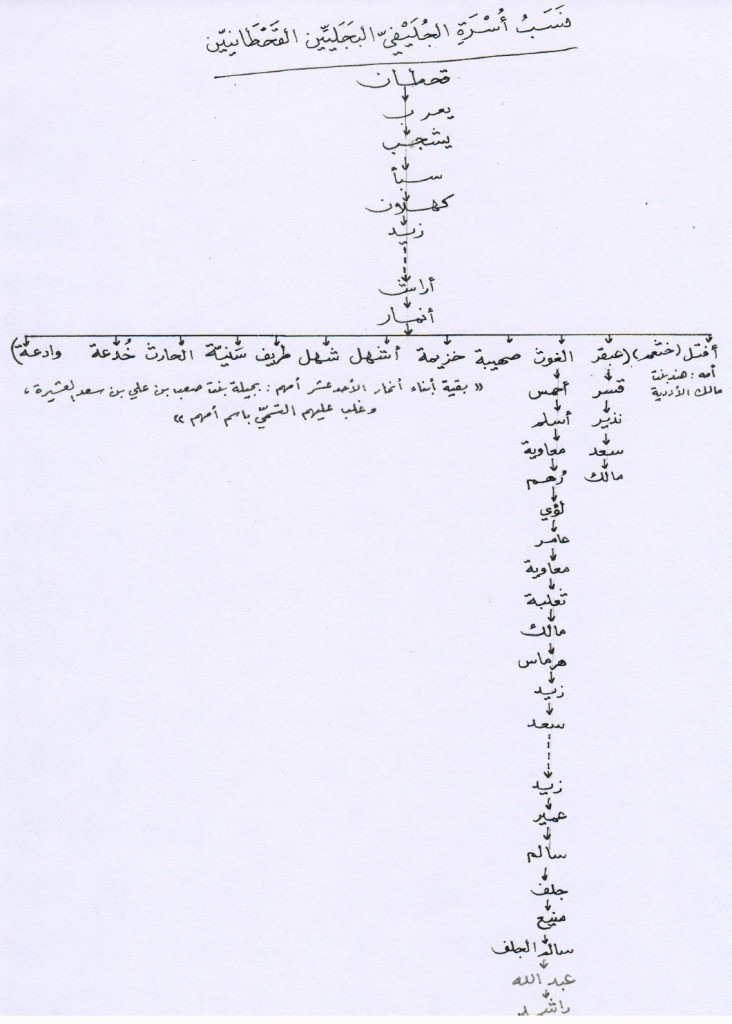 نَسَبُ أُسْرَةِ الجُلَيْفيّ البَجَليّين القَحْطَانِيّين
قحطان
يعرب
يشجب
سبأ
كهلان
زيد
أراش
أنمار
أفتل (خثعم) (عبقر الغوث صهيبة خزيمة أشهل شهل طريف سَنيّة الحارث خُدعة وادعة)
أمه: هند بنت مالك الأزدية
« بقية أبناء أنمار الأحد عشر أمهم: بجيلة بنت صعب بن علي بن سعد العشيرة،
وغلب عليهم التسمّي باسم أمهم »
قسر
نذير
سعد
مالك
أحمس
أسلم
معاوية
رُهم
لؤي
عامر
معاوية
ثعلبة
مالك
هرماس
زيد
سعد
زيد
عمير
سالم
جلف
منيع
سالم الجلف
عبد الله
راشد